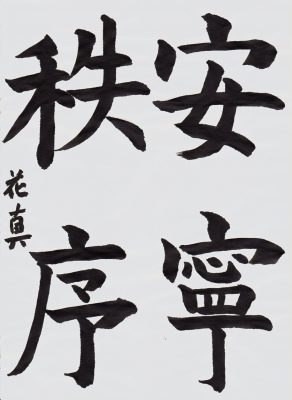 安寧
秩序
花真